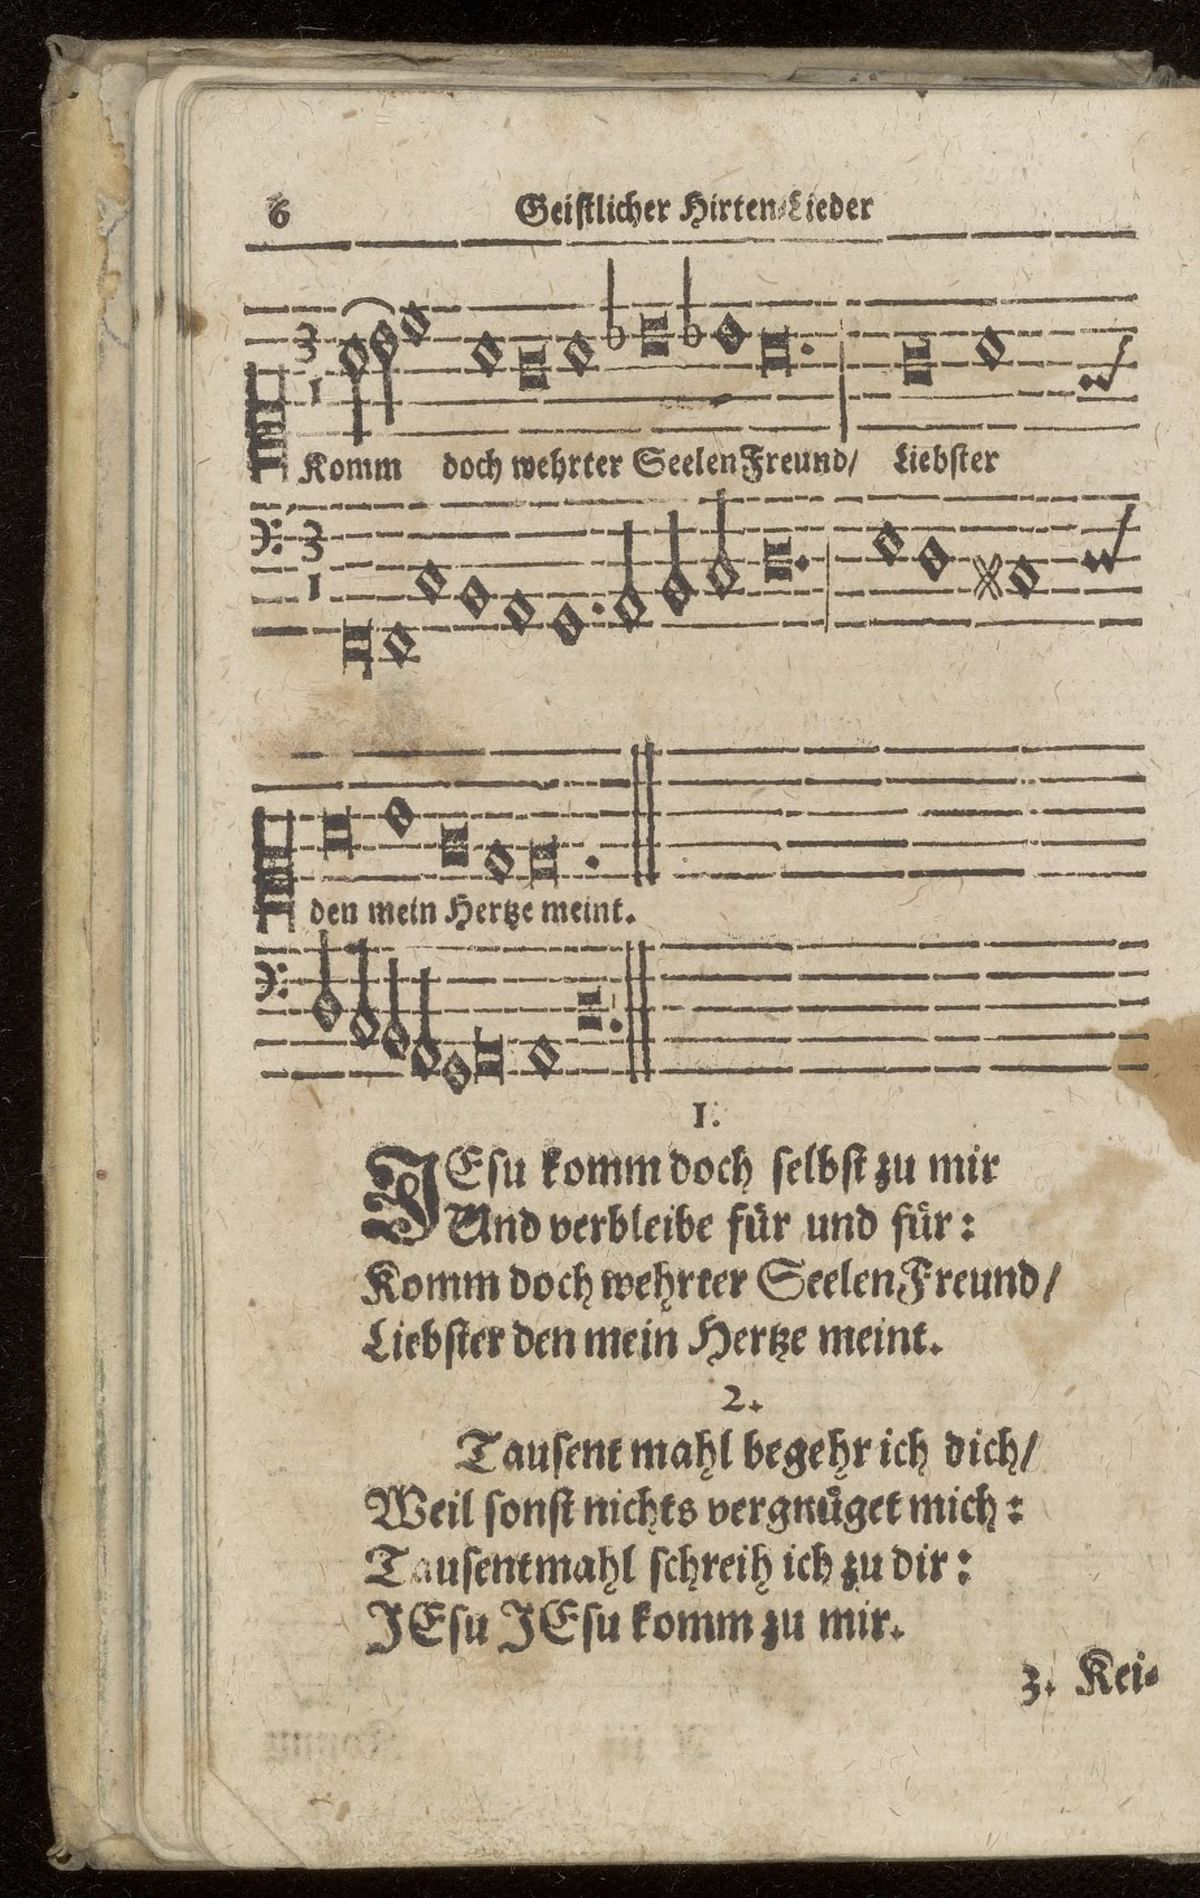 6 Geistlicher Hirten-Lieder
Komm doch wehrter Seelen Freund/ Liebster
den mein Hertze meint.
1.
JEsu komm doch selbst zu mir
Und verbleibe fuͤr und fuͤr:
Komm doch wehrter Seelen Freund/
Liebster den mein Hertze meint.
2.
Tausent mahl begehr ich dich/
Weil sonst nichts vergnuͤget mich:
Tausentmahl schreih ich zu dir:
JEsu JEsu komm zu mir.
3. Kei-